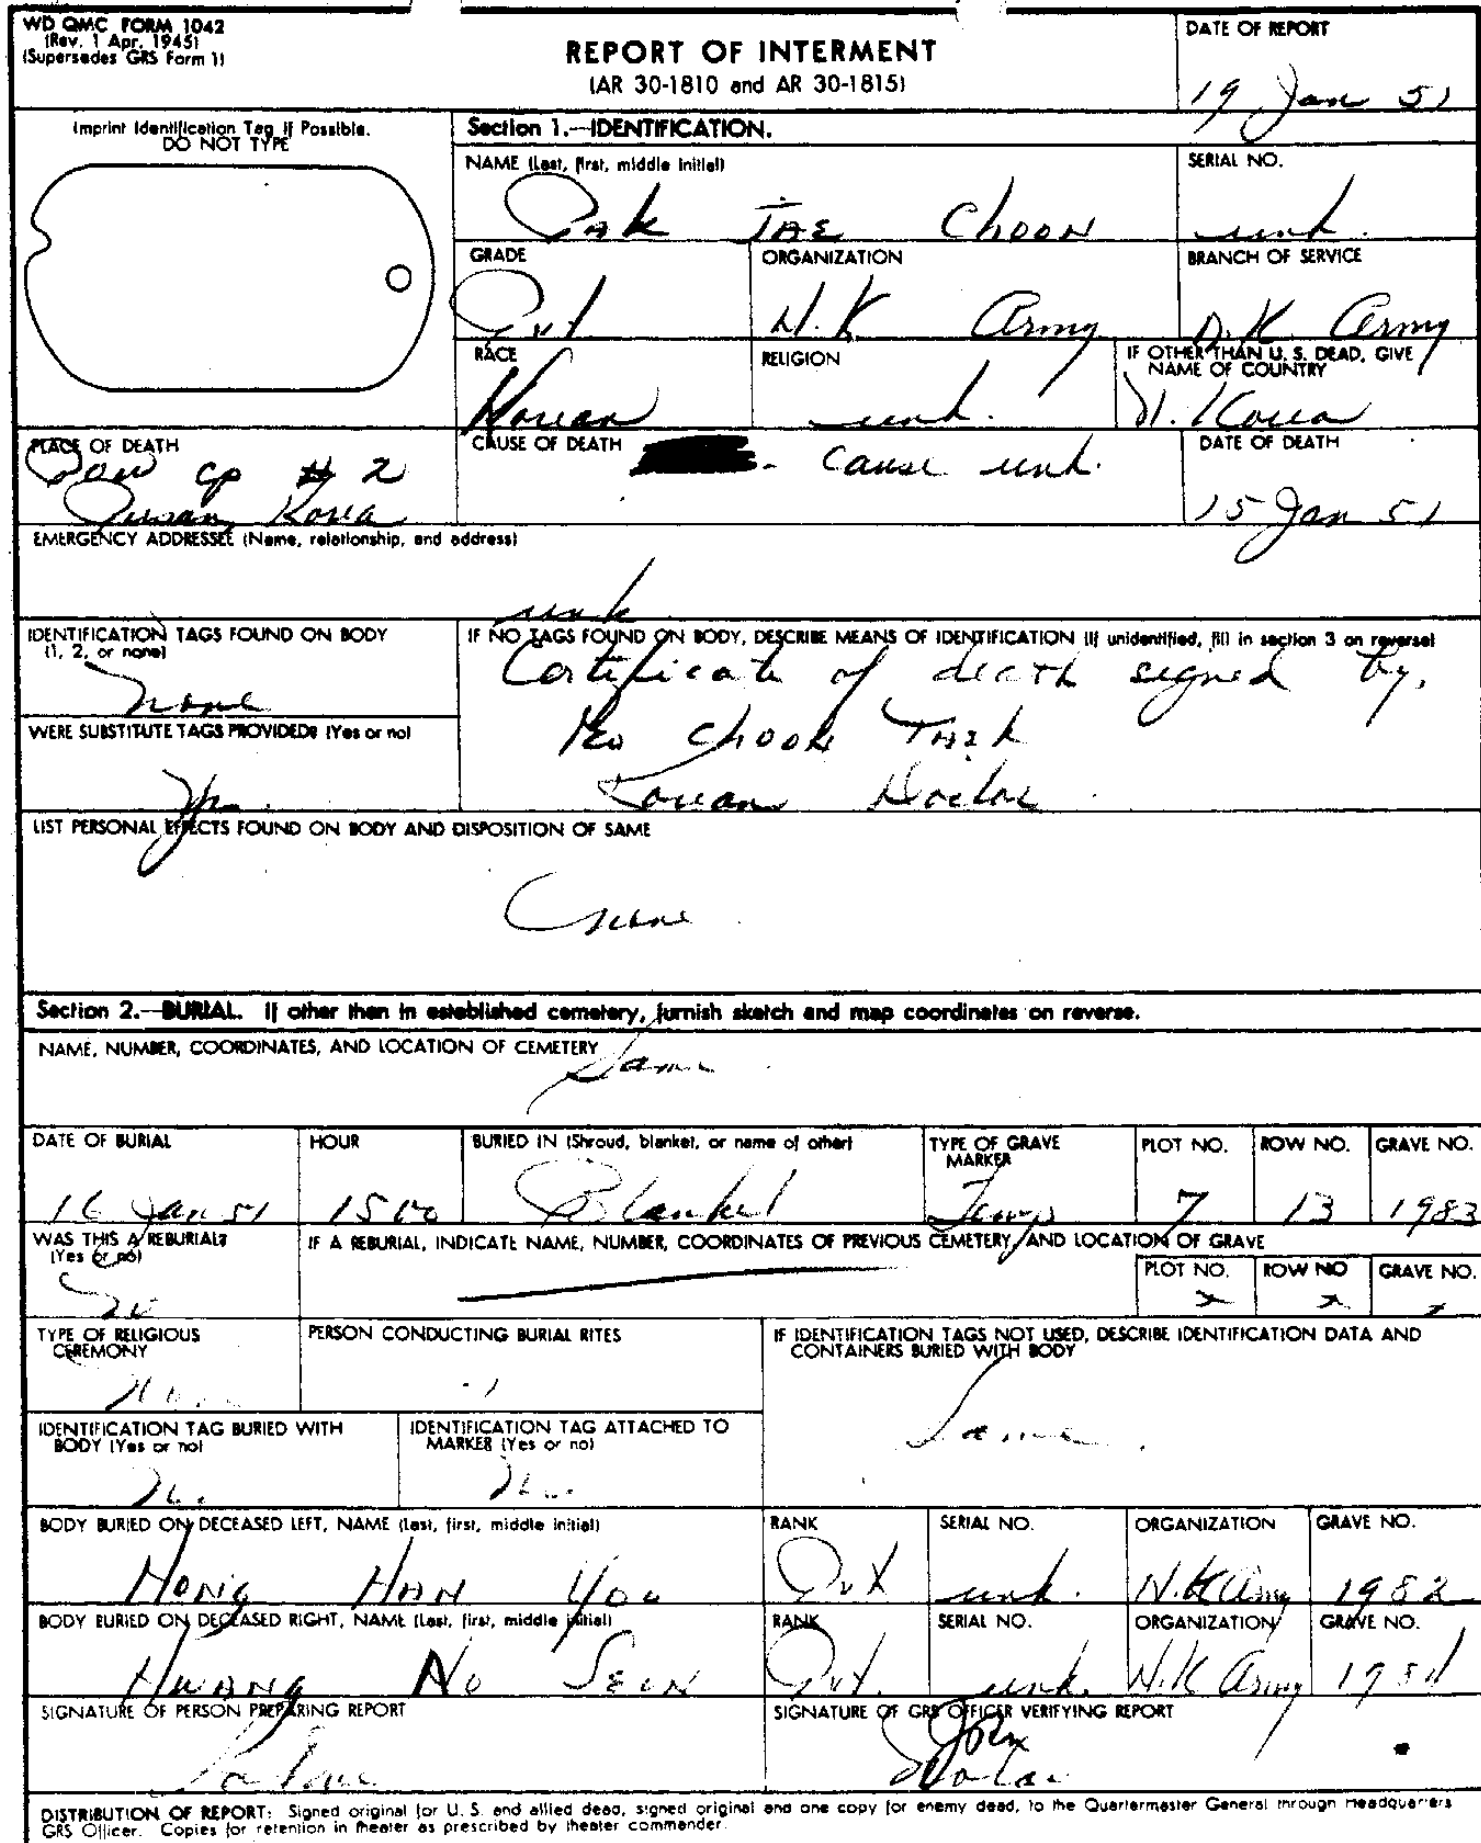 WD QMC FORM 1042
(Rev. 1 Apr. 1945)
(Supersedes GRS Form 1)
REPORT OF INTERMENT
(AR 30-1810 and AR 30-1815)
DATE OF REPORT
19 Jan 51
Imprint Identification Tag If Possible.
DO NOT TYPE
Section 1.—IDENTIFICATION.
NAME (Last, first, middle initial)
Pak JAE Choon
SERIAL NO.
unk.
GRADE
Pvt
ORGANIZATION
N.K Army
BRANCH OF SERVICE
N.K Army
RACE
Korean
RELIGION
unk.
IF OTHER THAN U. S. DEAD, GIVE
NAME OF COUNTRY
N. Korea
PLACE OF DEATH
Pow cp # 2
Pusan, Korea
CAUSE OF DEATH
- Cause unk.
DATE OF DEATH
15 Jan 51
EMERGENCY ADDRESSEE (Name, relationship, and address)
unk
IDENTIFICATION TAGS FOUND ON BODY
(1, 2, or none)
none
IF NO TAGS FOUND ON BODY, DESCRIBE MEANS OF IDENTIFICATION (If unidentified, fill in section 3 on reverse)
Certificate of death signed by,
Choon
Korean Doctor
WERE SUBSTITUTE TAGS PROVIDED? (Yes or no)
Yes
LIST PERSONAL EFFECTS FOUND ON BODY AND DISPOSITION OF SAME
None
Section 2.—BURIAL. If other than in established cemetery, furnish sketch and map coordinates on reverse.
NAME, NUMBER, COORDINATES, AND LOCATION OF CEMETERY
Same
DATE OF BURIAL
16 Jan 51
HOUR
1500
BURIED IN (Shroud, blanket, or name of other)
Blanket
TYPE OF GRAVE
MARKER
Temp
PLOT NO.
7
ROW NO.
13
GRAVE NO.
1983
WAS THIS A REBURIAL?
(Yes or no)
No
IF A REBURIAL, INDICATE NAME, NUMBER, COORDINATES OF PREVIOUS CEMETERY, AND LOCATION OF GRAVE
PLOT NO.
x
ROW NO
x
GRAVE NO.
x
TYPE OF RELIGIOUS
CEREMONY
None
PERSON CONDUCTING BURIAL RITES
IF IDENTIFICATION TAGS NOT USED, DESCRIBE IDENTIFICATION DATA AND
CONTAINERS BURIED WITH BODY
Same
IDENTIFICATION TAG BURIED WITH
BODY (Yes or no)
No.
IDENTIFICATION TAG ATTACHED TO
MARKER (Yes or no)
No.
BODY BURIED ON DECEASED LEFT, NAME (Last, first, middle initial)
HONG HAN YOU
RANK
Pvt
SERIAL NO.
unk.
ORGANIZATION
N.K Army
GRAVE NO.
1982
BODY BURIED ON DECEASED RIGHT, NAME (Last, first, middle initial)
HWANG No SEUN
RANK
Pvt.
SERIAL NO.
unk.
ORGANIZATION
N.K Army
GRAVE NO.
SIGNATURE OF PERSON PREPARING REPORT
SIGNATURE OF GRS OFFICER VERIFYING REPORT
DISTRIBUTION OF REPORT: Signed original for U. S. and allied dead, signed original and one copy for enemy dead, to the Quartermaster General through Headquarters
GRS Officer. Copies for retention in theater as prescribed by theater commander.